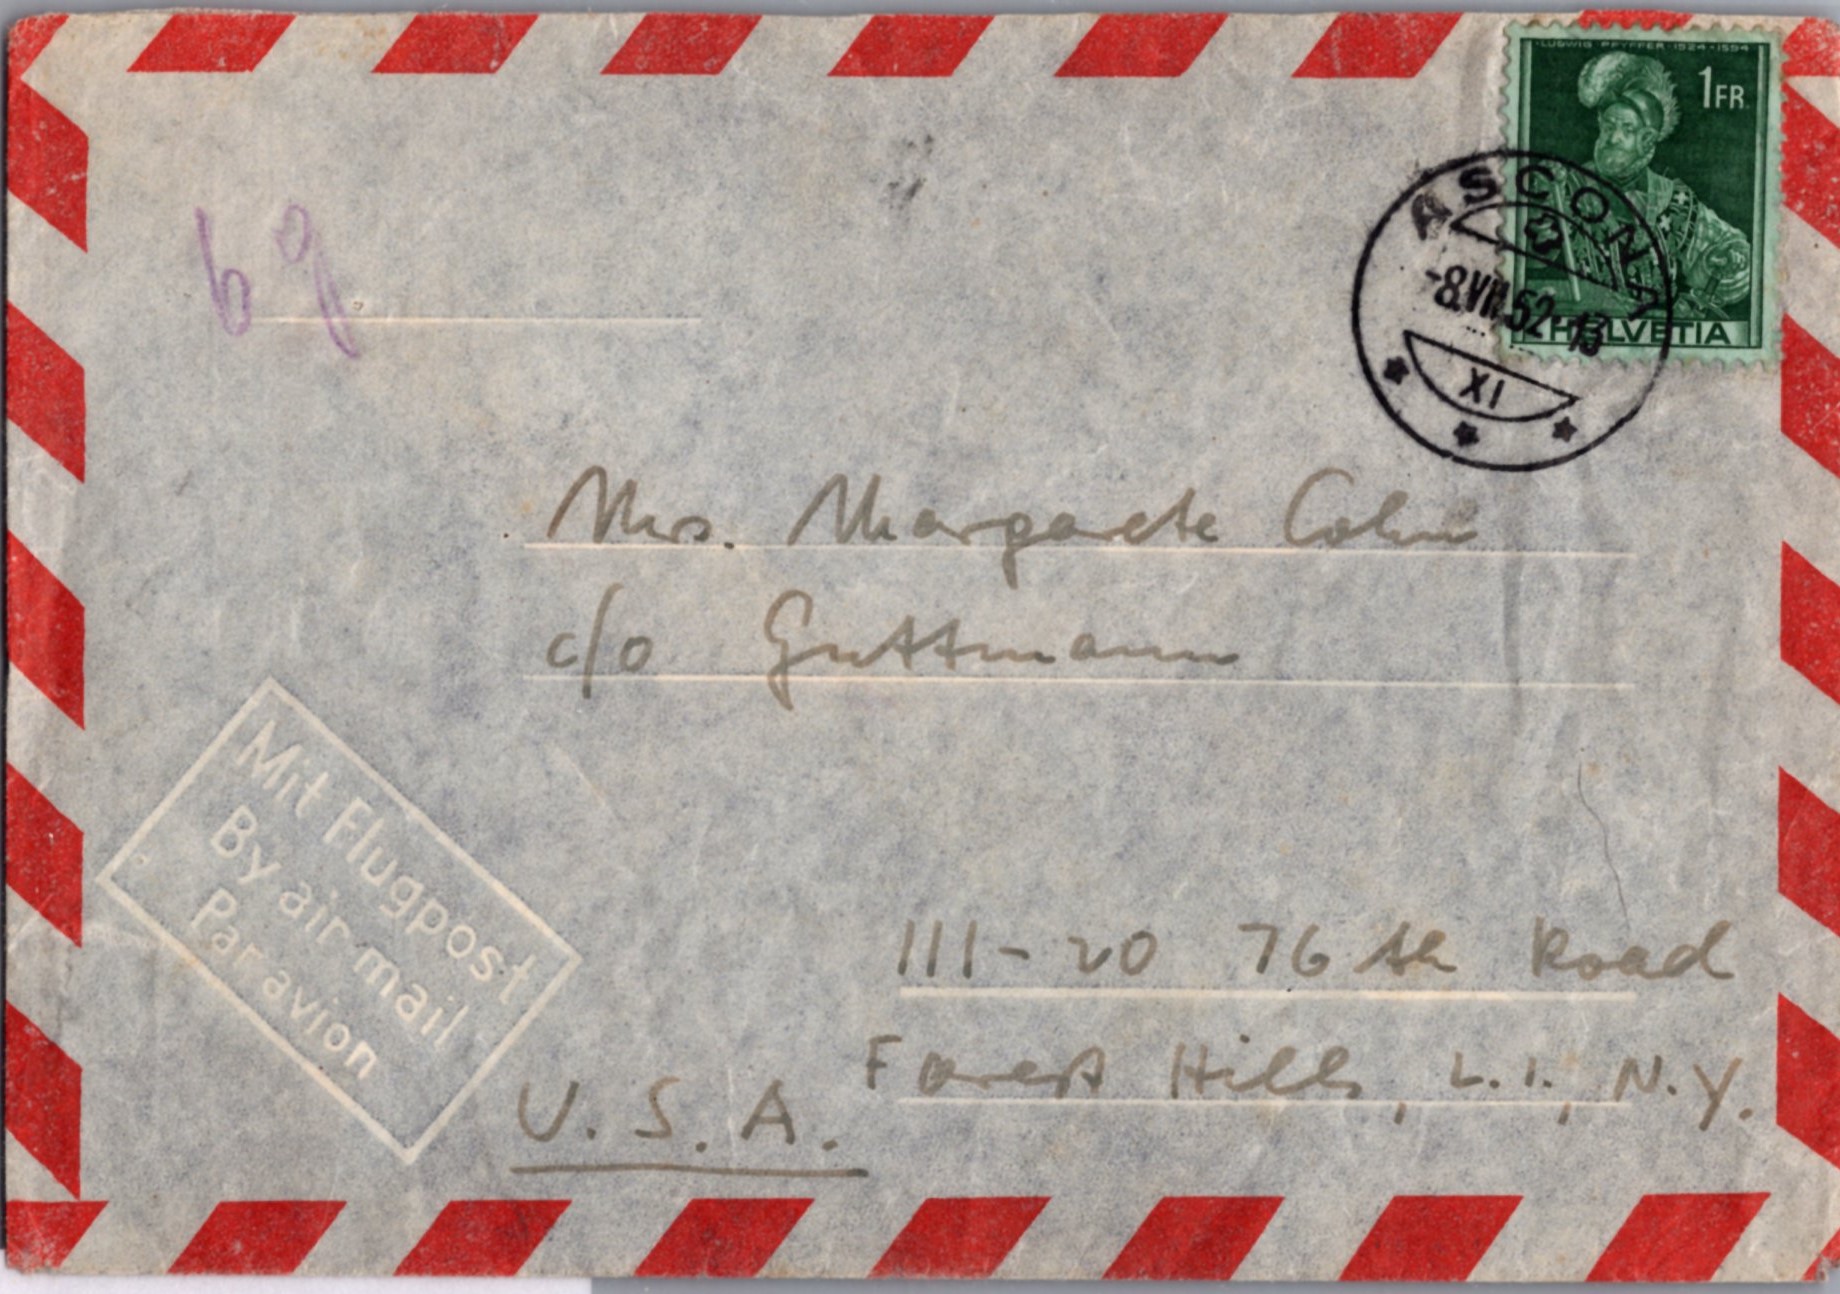 LUDWIG PFYFFER·1524-1594
1FR
HELVETIA
ASCONA
-8.VII.52.-13
XI
6g
Mrs. Margarete Cohn
c/o Guttmann
111-20 76th Road
Forest Hills, L.I., N.Y.
U.S.A.
Mit Flugpost
By air mail
Par avion